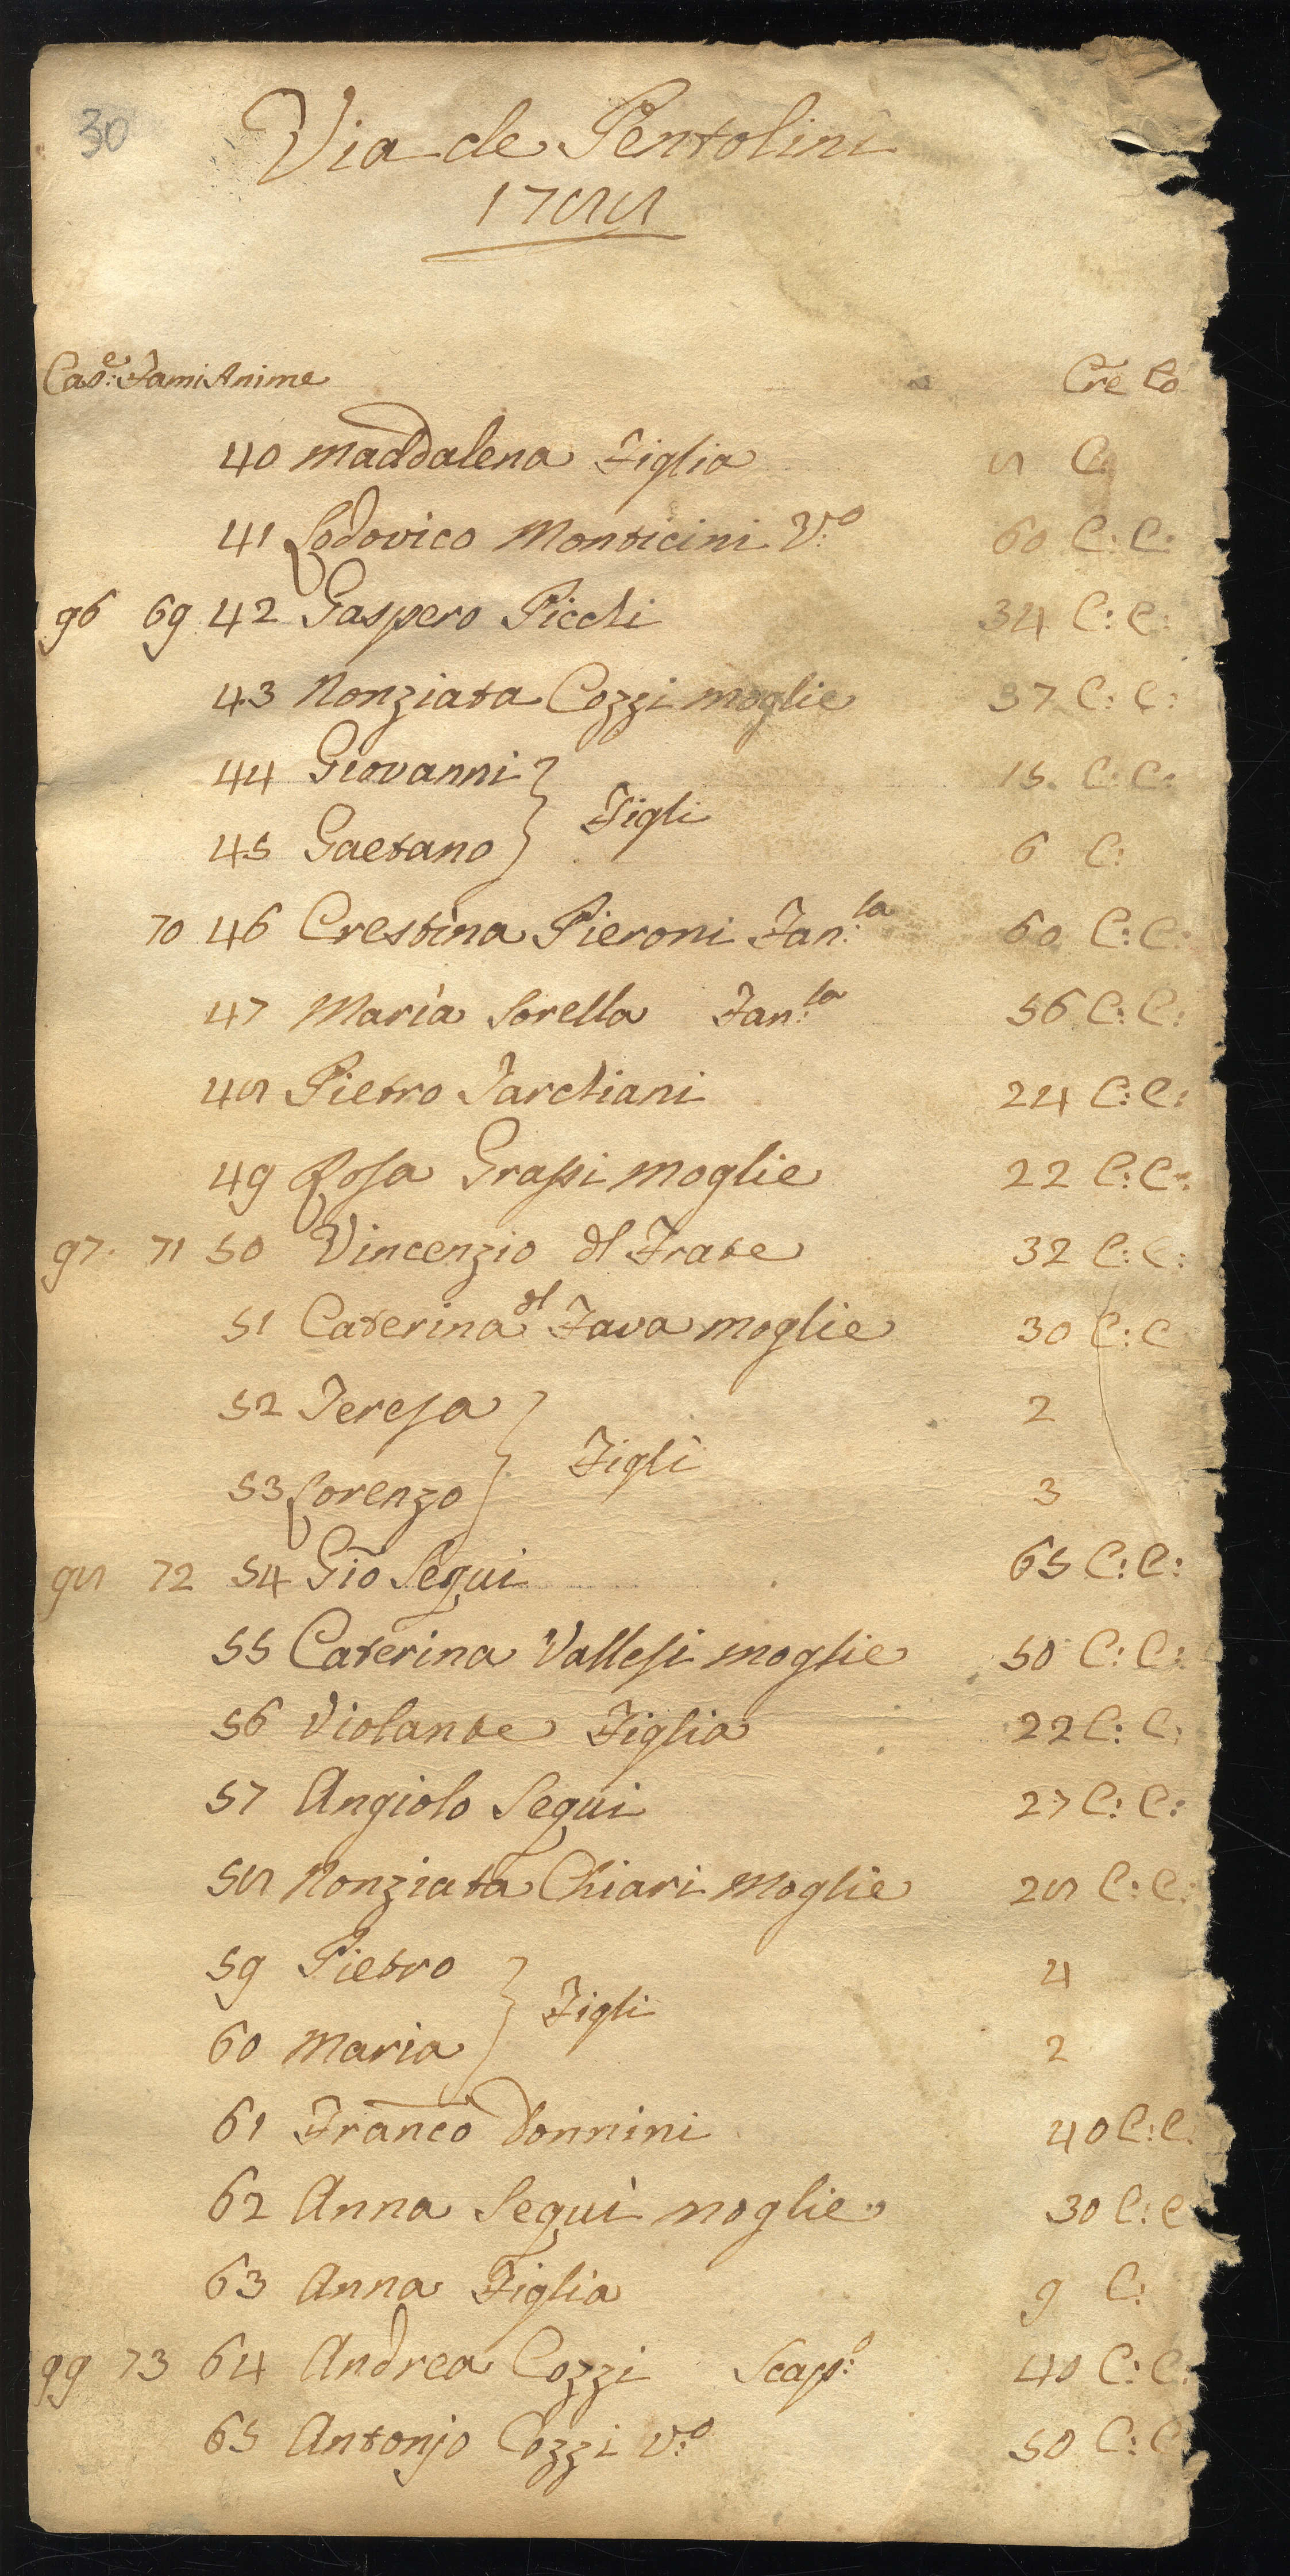 30
Via de Pentolini
1788
Cas:e Fami Anime Cre Co
40 Maddalena Figlia 8 C:
41 Lodovico Monticini V:o 60 C: C:
96 69 42 Gaspero Picchi 34 C: C:
43 Nonziata Cozzi moglie 37 C: C:
44 Giovanni } 15. C: C:
Figli
45 Gaetano } 6 C:
70 46 Crestina Pieroni Fan:la 60 C: C:
47 Maria Sorella Fan:la 56 C: C:
48 Pietro Tarchiani 24 C: C:
49 Rosa Grassi moglie 22 C: C:
97. 71 50 Vincenzio dl Frate 32 C: C:
51 Caterina dl Fava moglie 30 C: C
52 Teresa } 2
Figli
53 Lorenzo } 3
98 72 54 Gio Segui 65 C: C:
55 Caterina Vallesi moglie 50 C: C:
56 Violante Figlia 22 C: C:
57 Angiolo Segui 27 C: C:
58 Nonziata Chiari Moglie 28 C: C:
59 Pietro } 4
Figli
60 Maria } 2
61 Franco Donnini 40 C: C:
62 Anna Segui moglie 30 C: C
63 Anna Figlia 9 C:
99 73 64 Andrea Cozzi Scap:o 40 C: C:
65 Antonjo Cozzi V:o 50 C: C